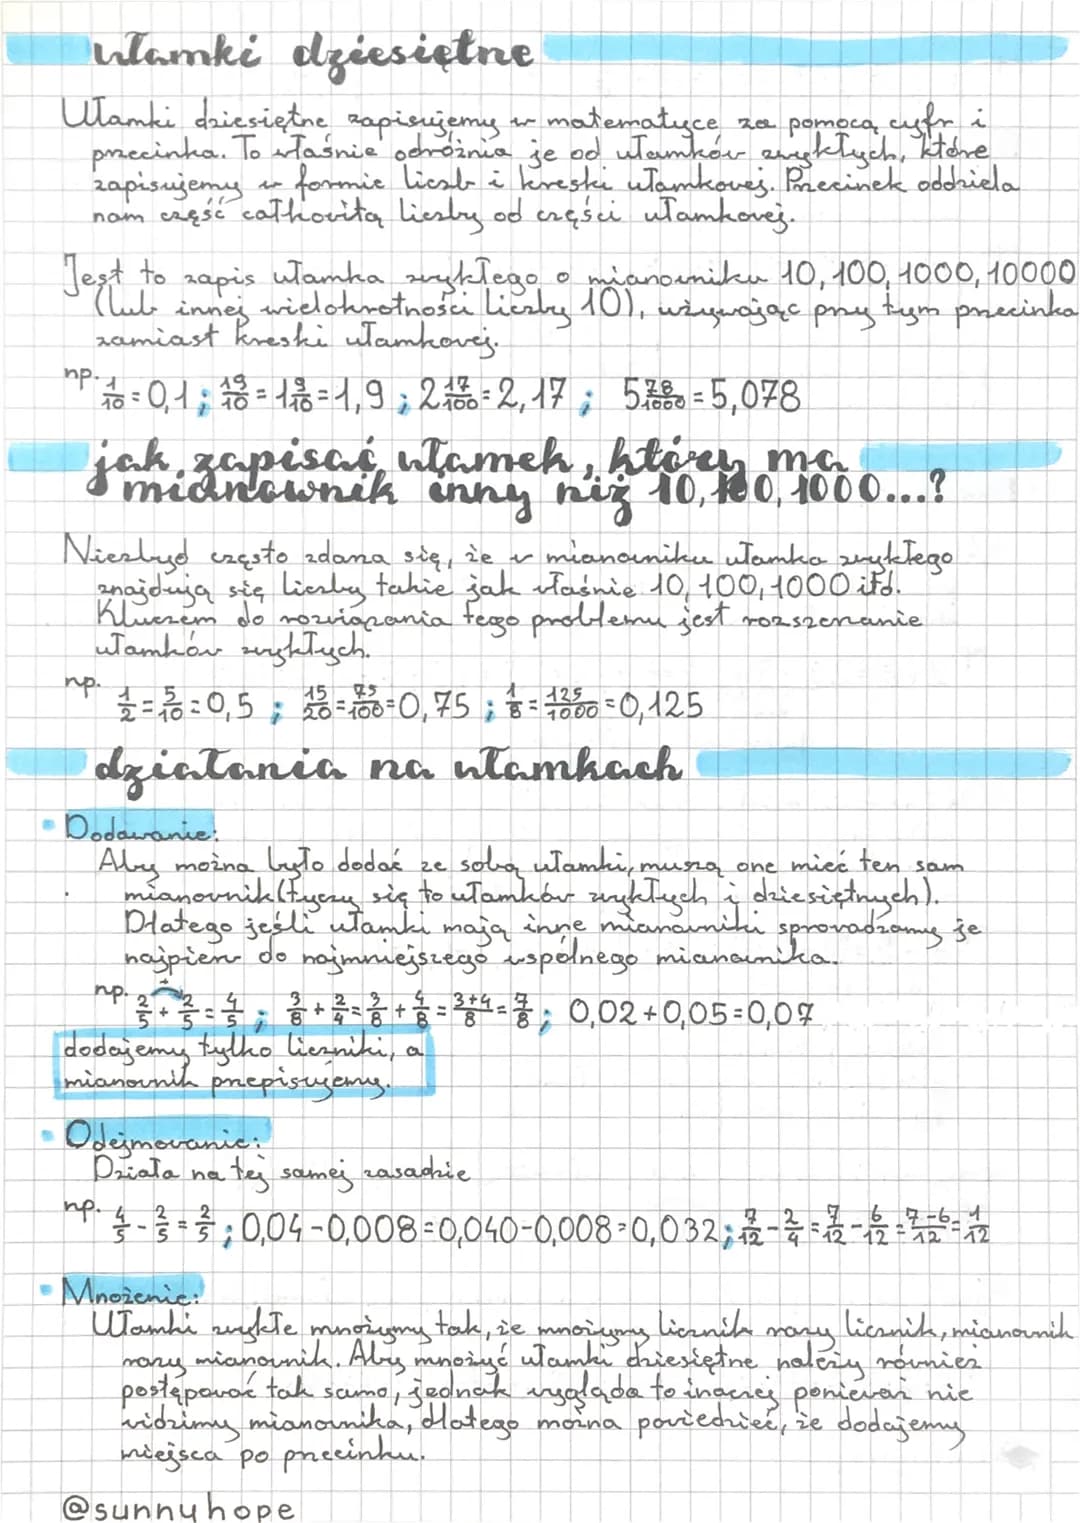 ułamki dziesiętne
Ułamki dziesiętne zapisujemy w matematyce za pomocą cyfr i
przecinka. To właśnie odróżnia je od ułamków zwykłych, które
zapisujemy w formie liczb i kreski ułamkowej. Przecinek oddziela
nam część całkowitą liczby od części ułamkowej.
Jest to zapis ułamka zwykłego o mianowniku 10, 100, 1000, 10000
(lub innej wielokrotności liczby 10), używając przy tym przecinka
zamiast kreski ułamkowej.
np. 1/10 = 0,1 ; 19/10 = 1 9/10 = 1,9 ; 2 17/100 = 2,17 ; 5 78/1000 = 5,078
jak zapisać ułamek, który ma
mianownik inny niż 10, 100, 1000...?
Niezbyt często zdarza się, że w mianowniku ułamka zwykłego
znajdują się liczby takie jak właśnie 10, 100, 1000 itd.
Kluczem do rozwiązania tego problemu jest rozszerzanie
ułamków zwykłych.
np. 1/2 = 5/10 = 0,5 ; 15/20 = 75/100 = 0,75 ; 1/8 = 125/1000 = 0,125
działania na ułamkach
• Dodawanie:
Aby można było dodać ze sobą ułamki, muszą one mieć ten sam
mianownik (tyczy się to ułamków zwykłych i dziesiętnych).
Dlatego jeśli ułamki mają inne mianowniki sprowadzamy je
najpierw do najmniejszego wspólnego mianownika.
+
np. 2/5 + 2/5 = 4/5 ; 3/8 + 2/4 = 3/8 + 4/8 = 3+4/8 = 7/8 ; 0,02 + 0,05 = 0,07
dodajemy tylko liczniki, a
mianownik przepisujemy.
• Odejmowanie:
Działa na tej samej zasadzie
np. 4/5 - 2/5 = 2/5 ; 0,04 - 0,008 = 0,040 - 0,008 = 0,032 ; 7/12 - 2/4 = 7/12 - 6/12 = 7-6/12 = 1/12
• Mnożenie:
Ułamki zwykłe mnożymy tak, że mnożymy licznik razy licznik, mianownik
razy mianownik. Aby mnożyć ułamki dziesiętne należy również
postępować tak samo, jednak wygląda to inaczej ponieważ nie
widzimy mianownika, dlatego można powiedzieć, że dodajemy
miejsca po przecinku.
@sunnyhope